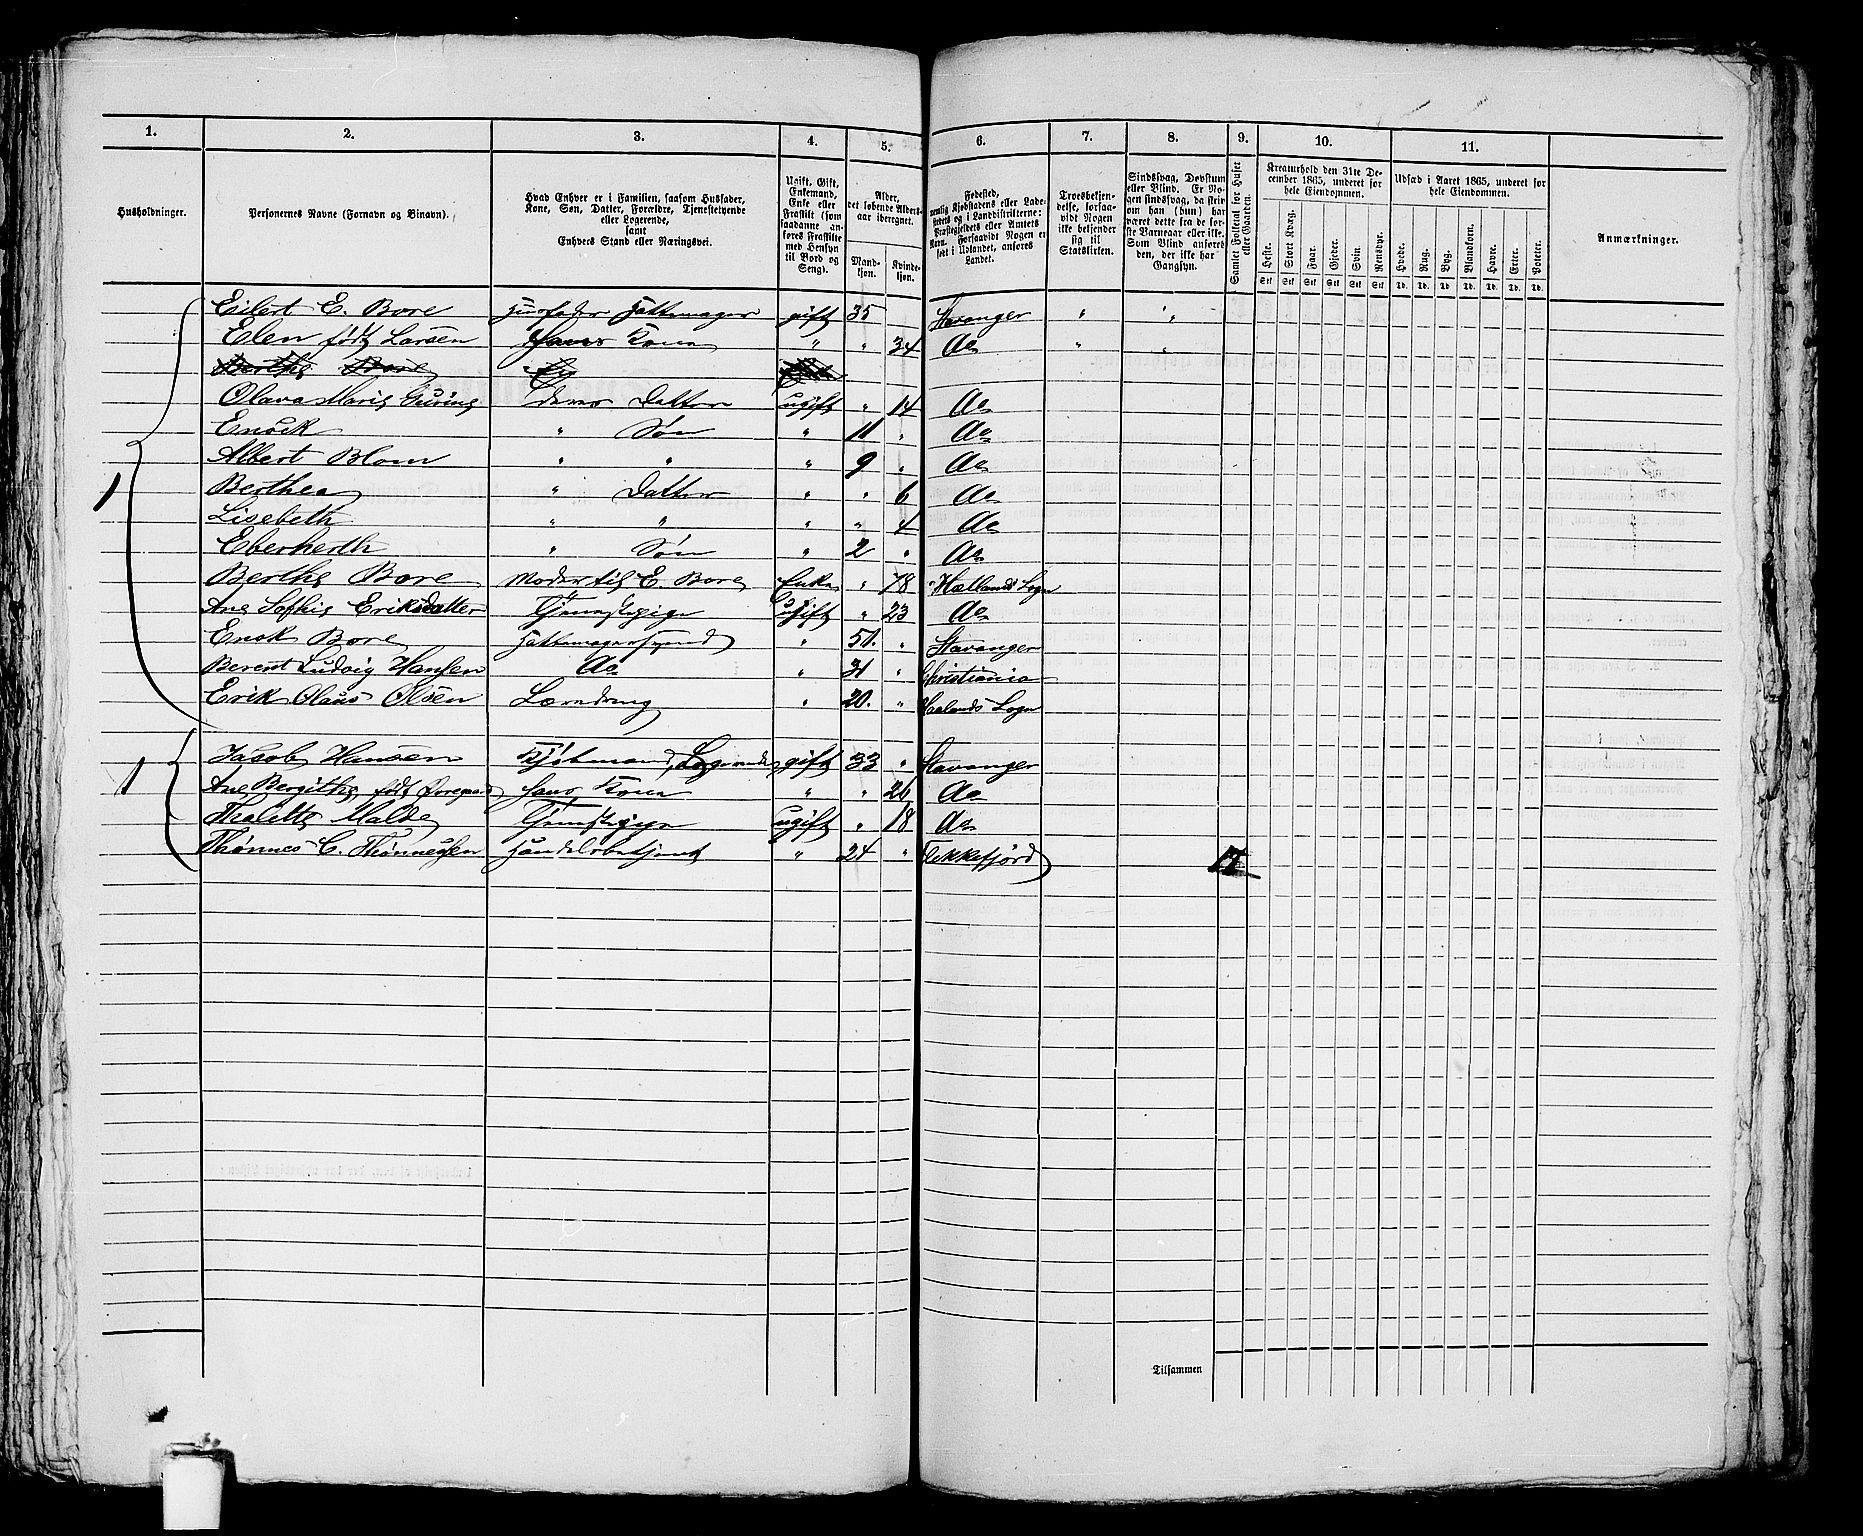 1. 2. 3. 4. 5. 6. 7. 8. 9. 10. 11.
Husholdninger.
Personernes Navne (Fornavn og Binavn).
Hvad Enhver er i Familien, saasom Husfader,
Kone, Søn, Datter, Forældre, Tjenestetyende
eller Logerende,
samt
Enhvers Stand eller Næringsvei.
Ugift, Gift,
Enkemand,
Enke eller
Fraskilt (som
saadanne an-
føres Fraskilte
med Hensyn
til Bord og
Seng).
Alder,
det løbende Alders-
aar iberegnet.
Mand-
kjøn.
Kvinde-
kjøn.
Fødested,
nemlig Kjøbstadens eller Lade-
stedets og i Landdistrikterne:
Præstegjeldets eller Annexets
Navn. Forsaavidt Nogen er
født i Udlandet, anføres
Landet.
Troesbekjen-
delse, forsaa-
vidt Nogen
ikke bekjender
sig til
Statskirken.
Sindssvag, Døvstum
eller Blind. Er No-
gen sindssvag, da skri-
ves om han (hun) har
været dette fra de før-
ste Barneaar eller ikke.
Som Blind anføres
den, der ikke har
Gangsyn.
Samlet Folketal for Huset
eller Gaarden.
Kreaturhold den 31te De-
cember 1865, underet for
hele Eiendommen.
Heste. Stort Kvæg. Faar. Gjeder. Svin. Rensdyr.
Stk Stk Stk Stk Stk Stk
Udsæd i Aaret 1865, underet for
hele Eiendommen.
Hvede. Rug. Byg. Blandkorn. Havre. Erter. Poteter.
Td. Td. Td. Td. Td. Td. Td.
Anmærkninger.
Eilert E. Bore Husfader Hattemager gift 35 Stavanger " "
Elen født Larsen Hans Kone " " 34 Do " "
Berthe Bore
Olava Marie deres Datter ugift " 14 Do
Enock " Søn " 11 " Do
Albert Blom " " " 9 " Do
Berthea " Datter " " 6 Do
Lisebeth " " " " 4 Do
Eberherth " Søn " 2 " Do
1
Berthe Bore Moder til E. Bore Enke " 78 Hællands Sogn
Ane Sofhie Eriksdatter Tjenestepige ugift " 23 Do
Enok Bore Hattemagersvend " 51. " Stavanger
Berent Ludvig Hansen Do " 31 " Christiania
Erik Olaus Olsen Læredreng " 20. " Haalands Sogn
Jacob Hansen Kjøbmand, Logerende gift 33 " Stavanger
1
Ane Bergitthe født hans Kone " " 26 Do
Malde Tjenestepige ugift " 18 Do
Thønnes C. Thønnessen Handelsbetjent " 24 " Flekkefjord 17
Tilsammen